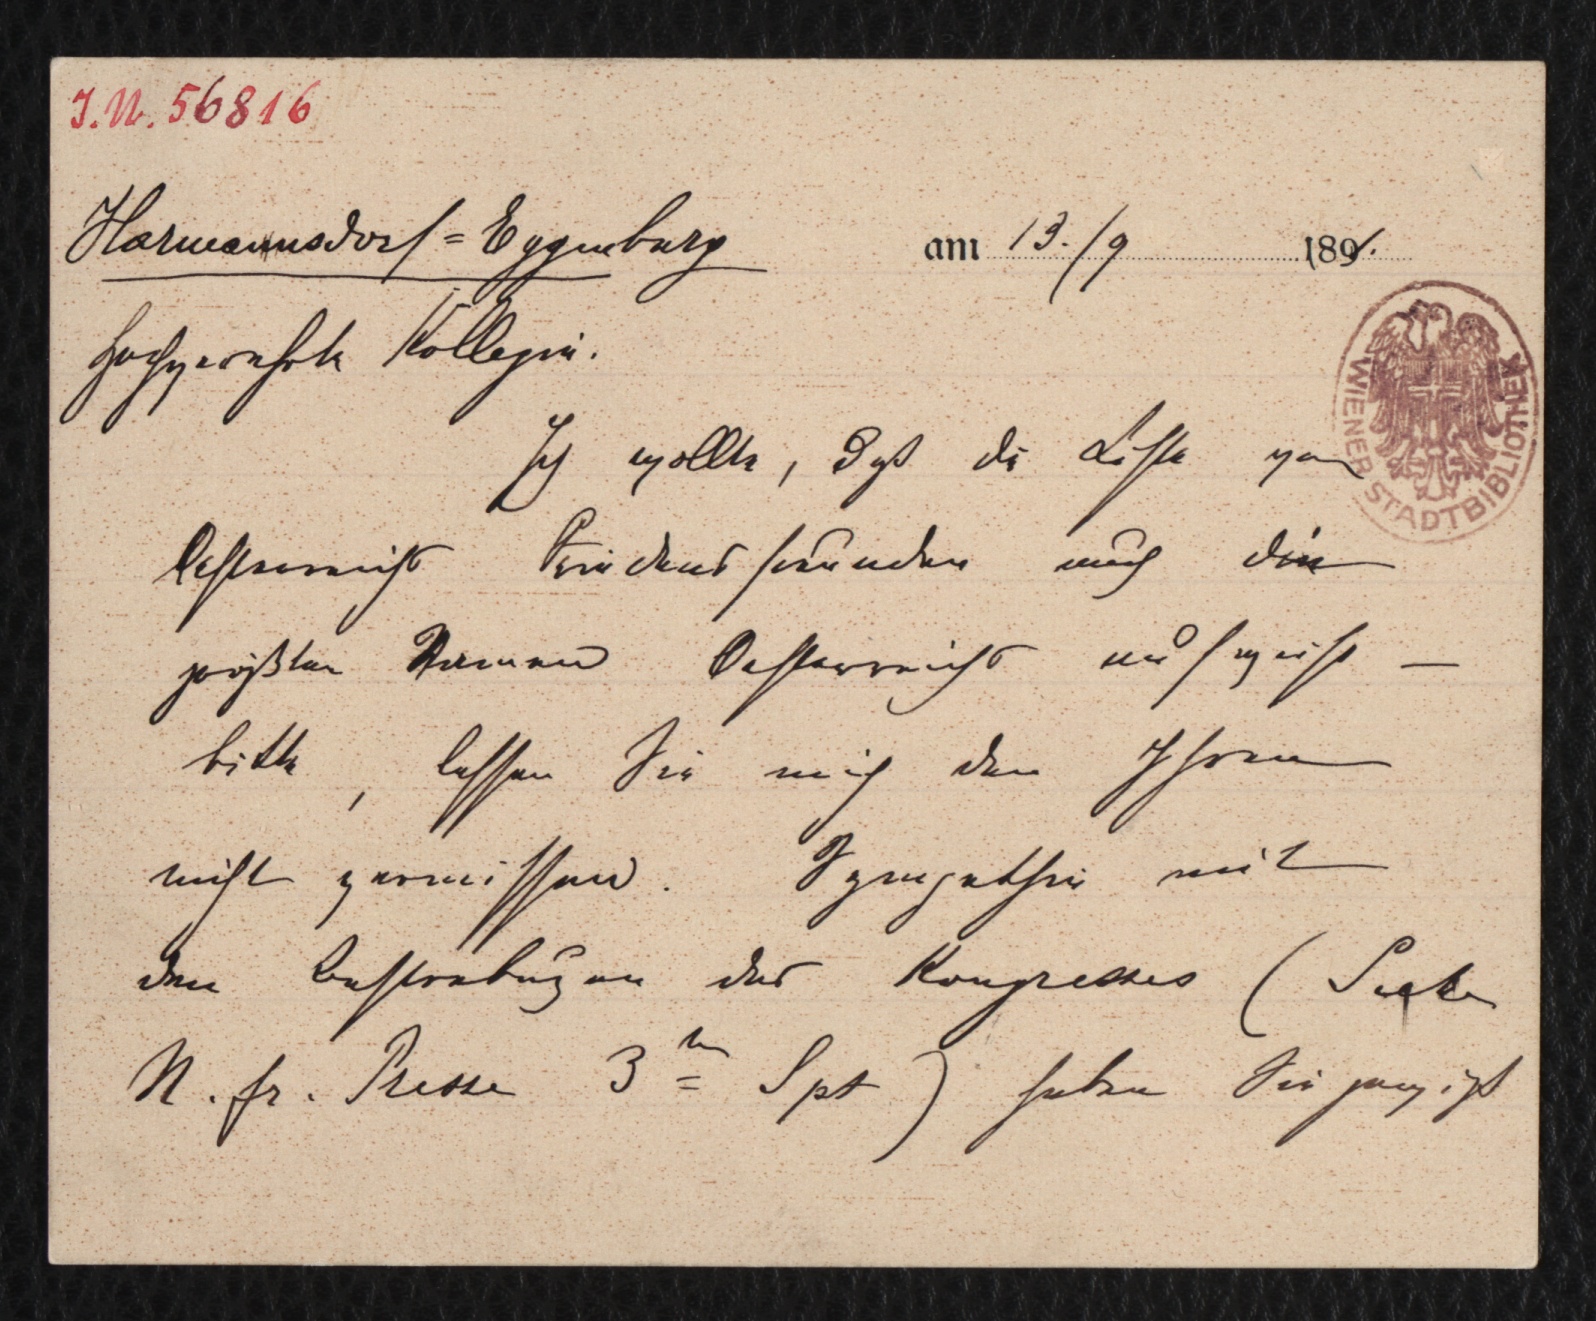 I.N. 56816
Harmannsdorf = Eggenburg am 13./9 1891.
Hochverehrte Kollegin.
Ich wollte, daß die Liste von
Oesterreichs Friedensfreunden auch die
größten Namen Oesterreichs aufweist —
bitte, lassen Sie mich den Ihren
nicht vermissen. Sympathie mit
den Bestrebungen des Kongresses (Siehe
N. fr. Presse 3ten Spt) haben Sie gewiß
WIENER STADTBIBLIOTHEK